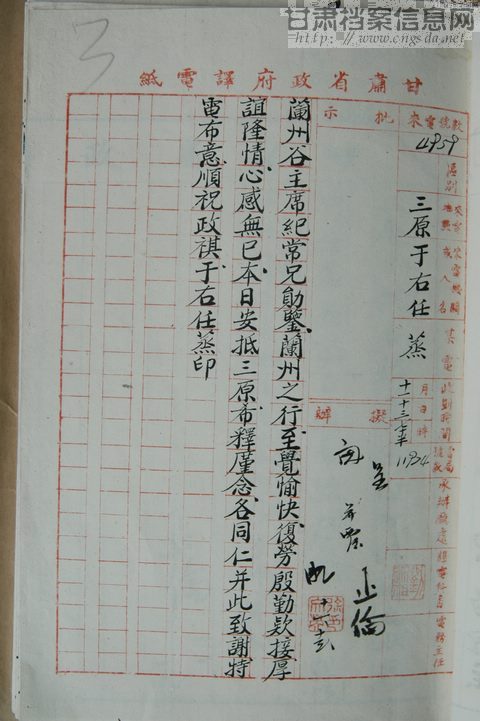 甘肃档案信息网
www.cngsda.net
甘肅省政府譯電紙
來電號數
4959
區別
三原于右任 蒸
月日時
十一 十三 七十
11924
批示
擬辦
蘭州谷主席紀常兄勛鑒蘭州之行至覺愉快復勞殷勤欵接厚
誼隆情心感無已本日安抵三原希釋廑念各同仁并此致謝特
電布意順祝政祺于右任蒸印
呈
正倫